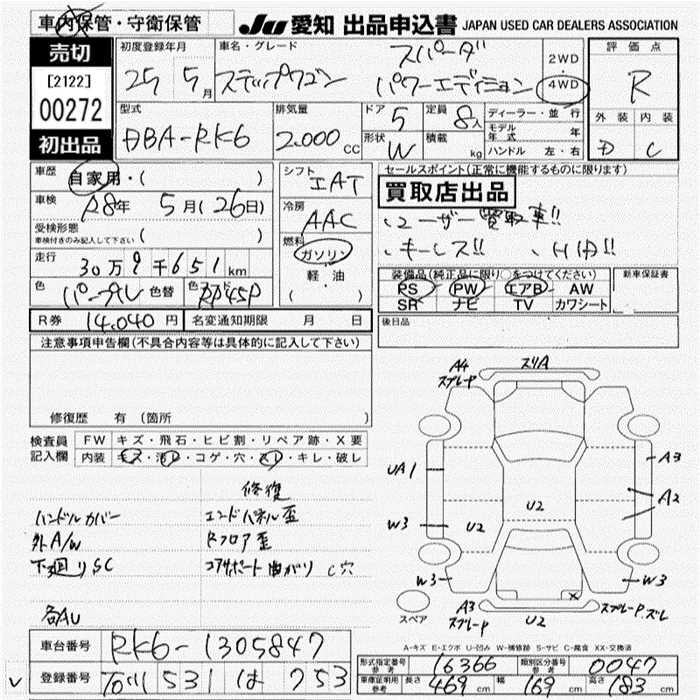 車内保管・守衛保管
JU 愛知 出品申込書 JAPAN USED CAR DEALERS ASSOCIATION
売切
[2122]
00272
初出品
初度登録年月
25 5月
車名・グレード
ステップワゴン スパーダ
パワーエディション
2WD
4WD
評価点
R
外装 内装
D C
型式
DBA-RK6
排気量
2.000 cc
ドア 5
定員 8人
形状 W
積載 kg
ディーラー・並行
モデル年式 年
ハンドル 左・右
車歴
自家用・( )
車検
R8年 5月(26日)
受検形態
車検付きのみ記入して下さい ( )
走行
30万9千651km
色 パープル 色替 色コード RP45P
シフト
IAT
冷房
AAC
燃料
ガソリン
軽・油
( )
セールスポイント(正常に機能するものに限ります)
買取店出品
、ユーザー買取車!!
、キーレス!! 、HID!!
装備品(純正品に限り○をつけてください)
PS PW エアB AW
SR ナビ TV カワシート
新車保証書
後日品
R券 14.040円 名変通知期限 月 日
注意事項申告欄(不具合内容等は具体的に記入して下さい)
修復歴 有(箇所 )
検査員記入欄
FW キズ・飛石・ヒビ割・リペア跡・X要
内装 キズ・汚レ・コゲ・穴・スレ・キレ・破レ
修復
ハンドルカバー エンドパネル歪
外A/W Rフロア歪
下廻りSC コアサポート曲がり C穴
各AU
A4 スプレーP
スリA
UA1
A3
A2
U2
W3
U2
U2
W3
W3
スペア
A3 スプレーP
U2
スプレーP.ズレ
A-キズ E-エクボ U-凹み W-補修跡 S-サビ C-腐食 XX-交換済
車台番号 RK6-1305847
登録番号 531 は 753
型式指定番号 参考 16366
類別区分番号 参考 0047
車庫証明用 参考 長さ 469cm 幅 169cm 高さ 183cm